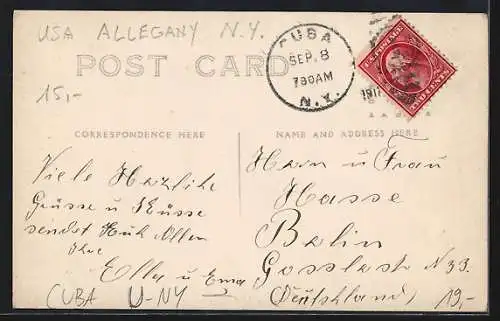 USA ALLEGANY N.Y.
POST CARD
15,-
CUBA
SEP. 8
730AM
N.Y.
1911
U.S. POSTAGE
CORRESPONDENCE HERE
NAME AND ADDRESS HERE
Viele Herzliche
Grüsse u Küsse
sendet Euch Allen
Ihre
Ella u Erna
Herrn u Frau
Hasse
Berlin
Gosslerstr N 33.
(Deutschland)
CUBA U-NY
19,-